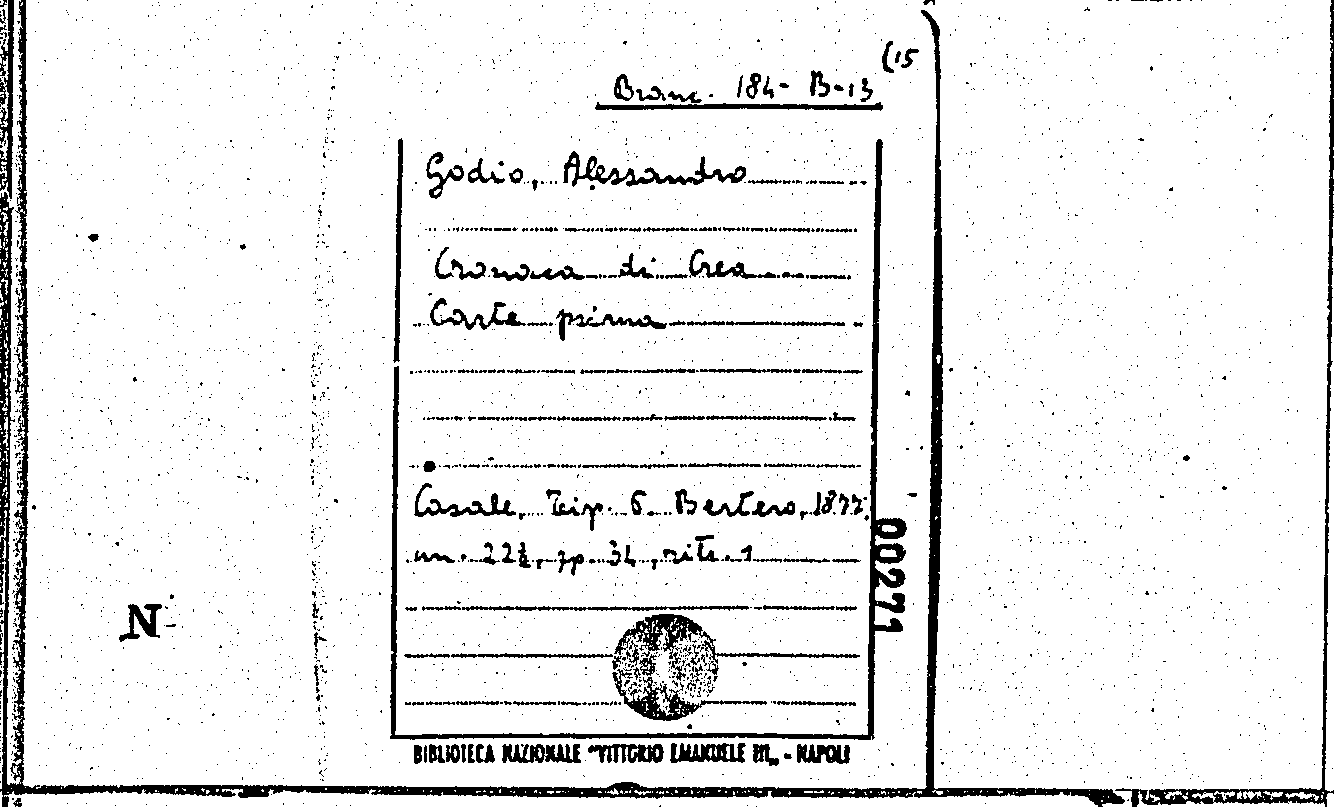 (15
Branc. 184- B-13
Godio, Alessandro
Cronaca di Crea
Carte prima
Casale, Tip. G. Bertero, 1877
cm. 22½, pp. 34, ritr. 1
00271
N-
BIBLIOTECA NAZIONALE "VITTORIO EMANUELE III„ - NAPOLI